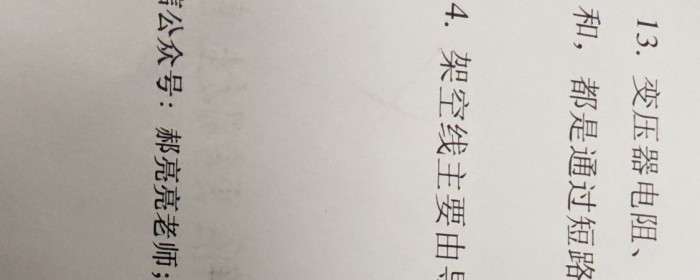 13. 变压器电阻、
和，都是通过短路
4. 架空线主要由
公众号：郝亮亮老师；